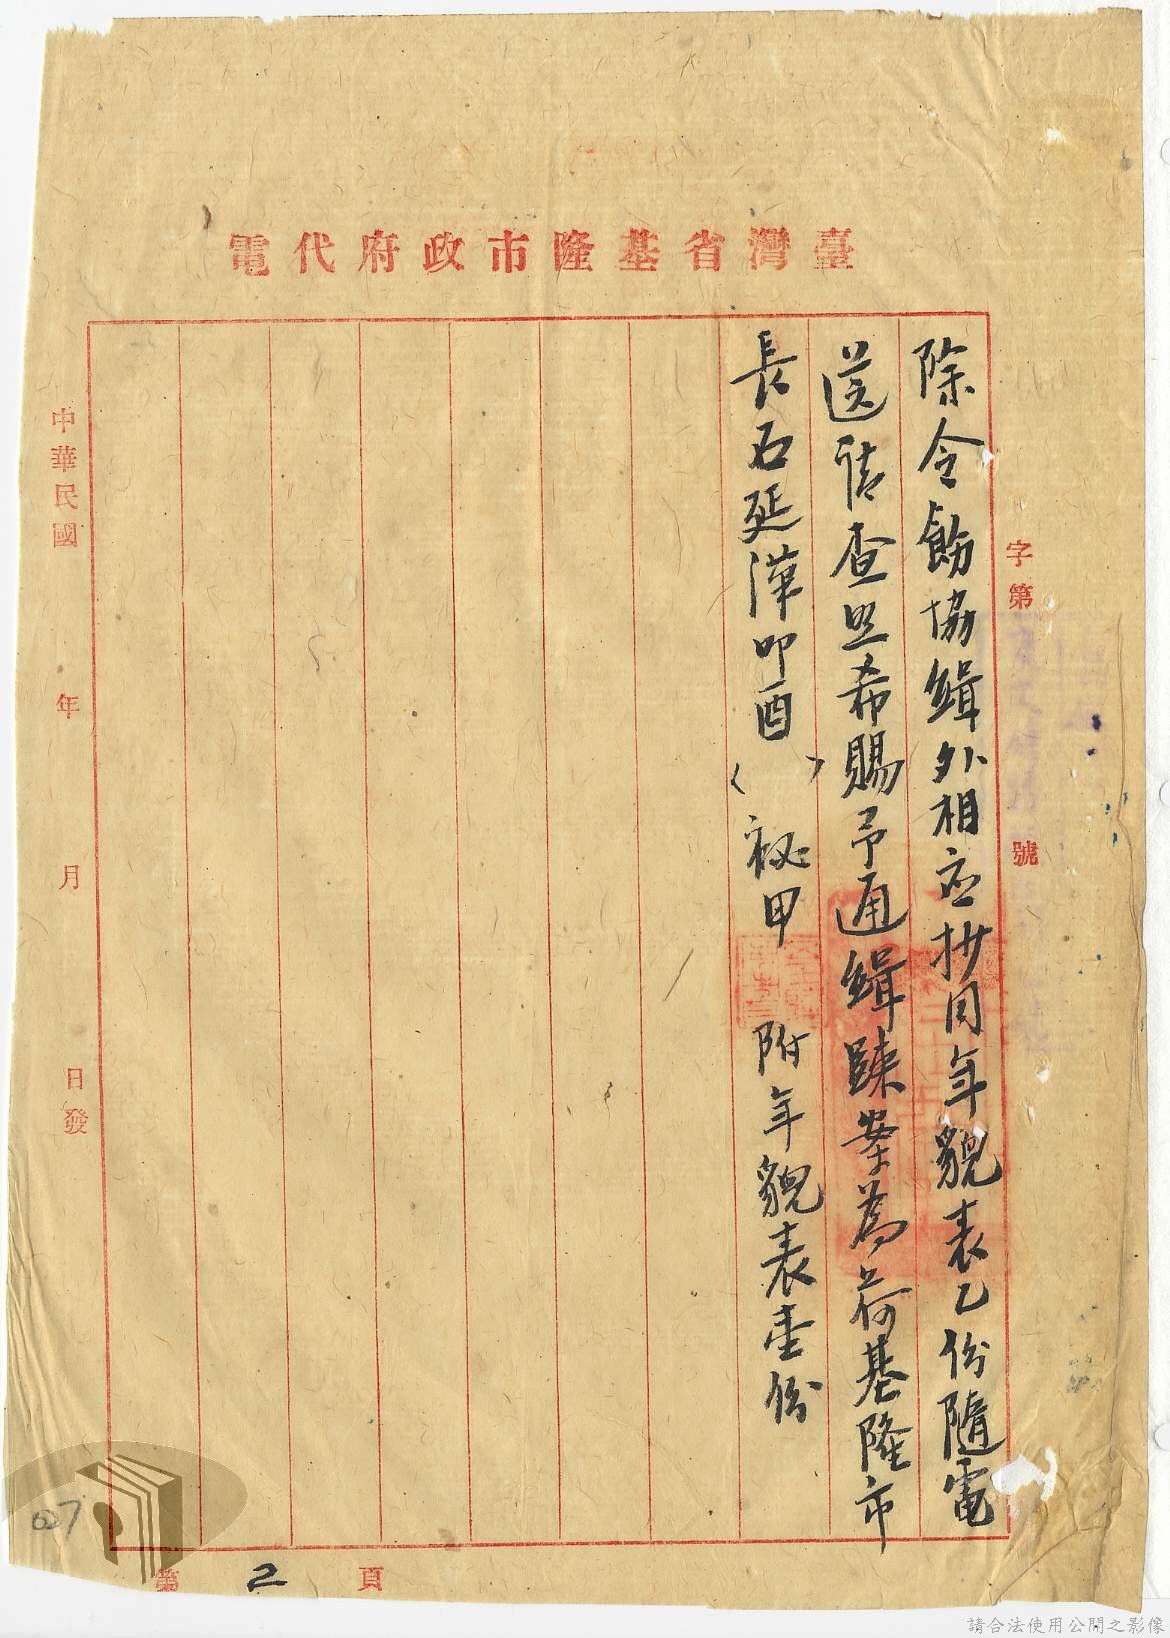 臺灣省基隆市政府代電
字第
號
除令飭協緝外相应抄同年貌表乙份隨電
送請查照希賜予通緝歸案為荷基隆市
長石延漢叩酉（　）祕甲　附年貌表壹份
中華民國　年　月　日發
第2頁
027
請合法使用公開之影像